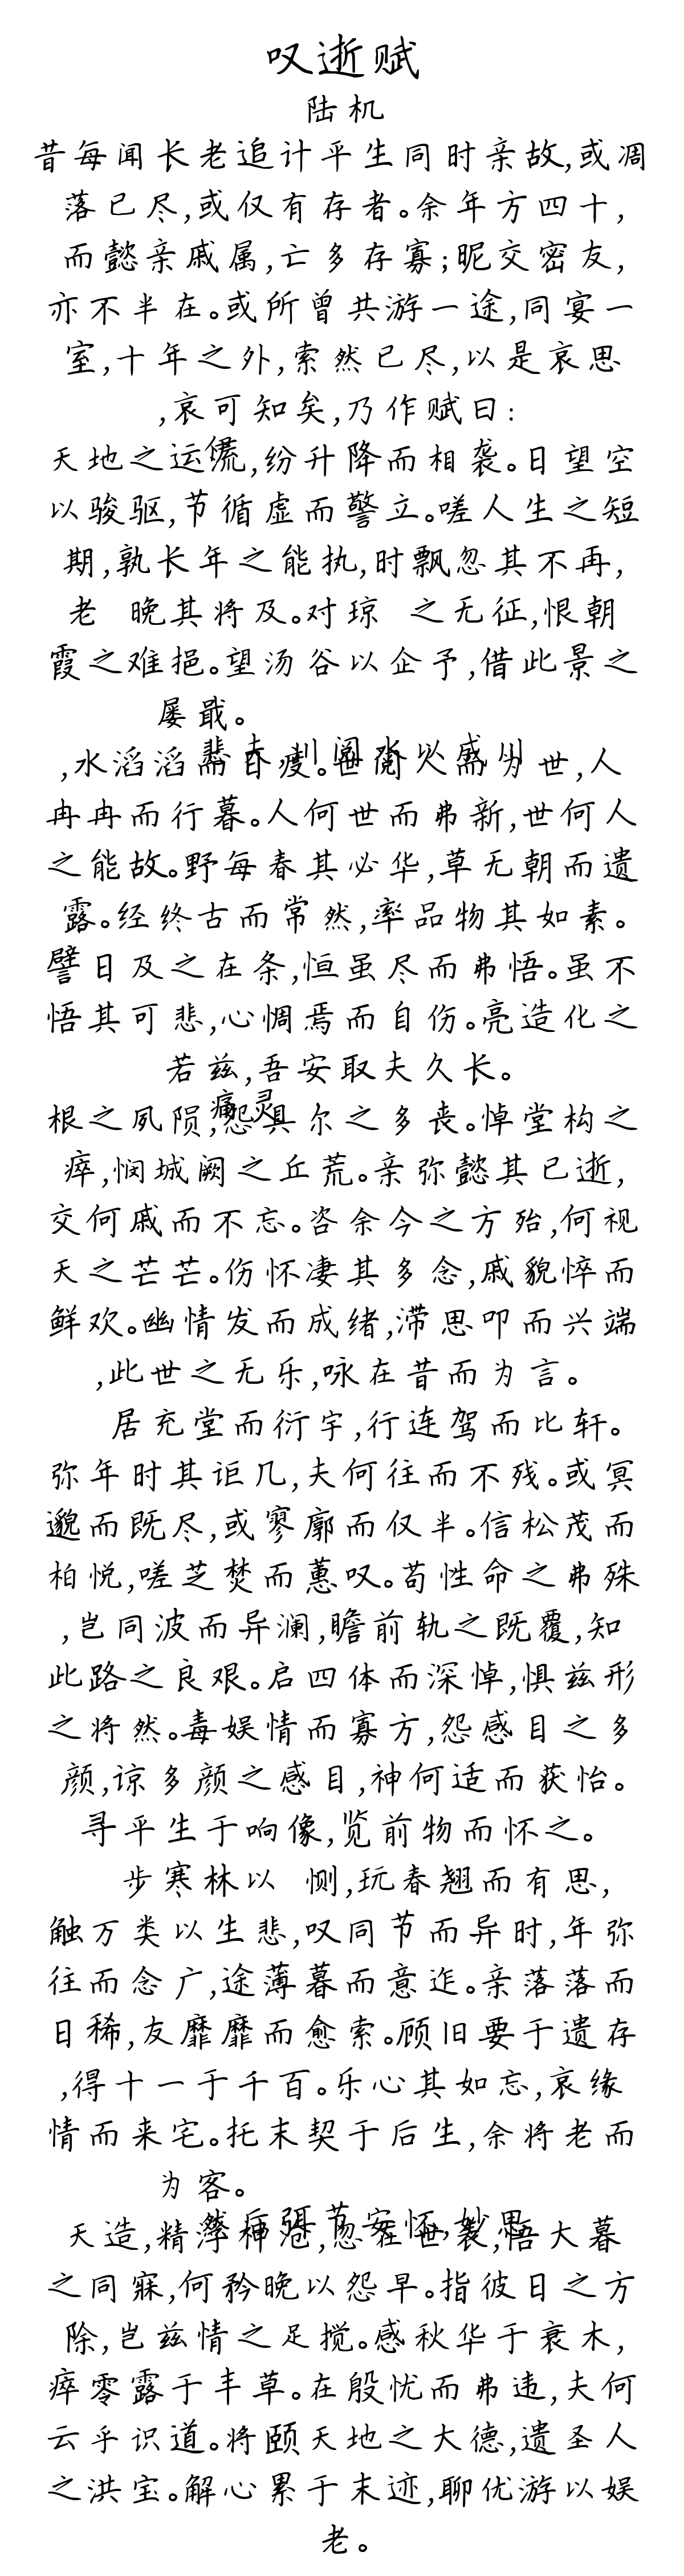 叹逝赋
陆机
昔每闻长老追计平生同时亲故,或凋
落已尽,或仅有存者。余年方四十,
而懿亲戚属,亡多存寡;昵交密友,
亦不半在。或所曾共游一途,同宴一
室,十年之外,索然已尽,以是哀思
,哀可知矣,乃作赋曰:
天地之运流,纷升降而相袭。日望空
以骏驱,节循虚而警立。嗟人生之短
期,孰长年之能执,时飘忽其不再,
老 晚其将及。对琼 之无征,恨朝
霞之难挹。望汤谷以企予,借此景之
屡戢。
悲夫,川阅水以成川
,水滔滔而日度。世阅人而为世,人
冉冉而行暮。人何世而弗新,世何人
之能故。野每春其必华,草无朝而遗
露。经终古而常然,率品物其如素。
譬日及之在条,恒虽尽而弗悟。虽不
悟其可悲,心惆焉而自伤。亮造化之
若兹,吾安取夫久长。
痛灵
根之夙陨,怨具尔之多丧。悼堂构之
瘁,悯城阙之丘荒。亲弥懿其已逝,
交何戚而不忘。咨余今之方殆,何视
天之芒芒。伤怀凄其多念,戚貌悴而
鲜欢。幽情发而成绪,滞思叩而兴端
,此世之无乐,咏在昔而为言。
居充堂而衍宇,行连驾而比轩。
弥年时其讵几,夫何往而不残。或冥
邈而既尽,或寥廓而仅半。信松茂而
柏悦,嗟芝焚而蕙叹。苟性命之弗殊
,岂同波而异澜,瞻前轨之既覆,知
此路之良艰。启四体而深悼,惧兹形
之将然。毒娱情而寡方,怨感目之多
颜,谅多颜之感目,神何适而获怡。
寻平生于响像,览前物而怀之。
步寒林以 恻,玩春翘而有思,
触万类以生悲,叹同节而异时,年弥
往而念广,途薄暮而意迮。亲落落而
日稀,友靡靡而愈索。顾旧要于遗存
,得十一于千百。乐心其如忘,哀缘
情而来宅。托末契于后生,余将老而
为客。
然后弭节安怀,妙思
天造,精浮神沧,忽在世表,悟大暮
之同寐,何矜晚以怨早。指彼日之方
除,岂兹情之足搅。感秋华于衰木,
瘁零露于丰草。在殷忧而弗违,夫何
云乎识道。将颐天地之大德,遗圣人
之洪宝。解心累于末迹,聊优游以娱
老。